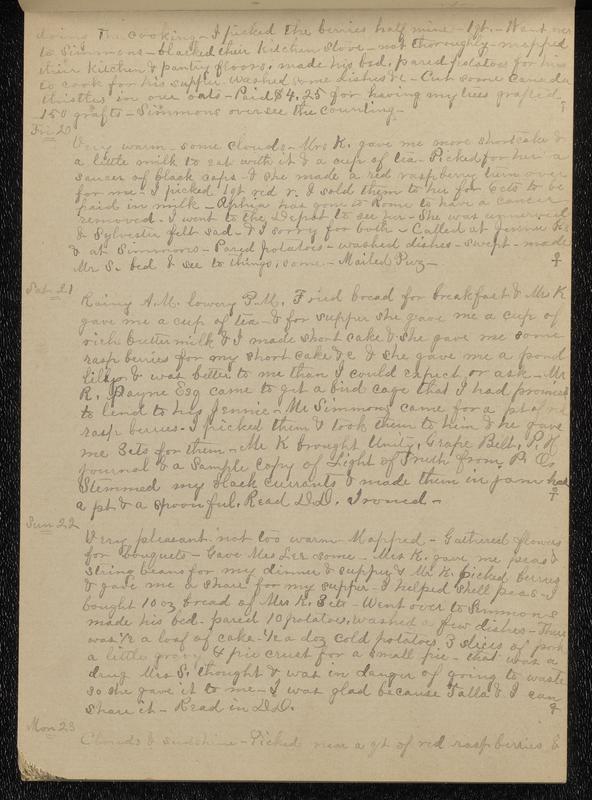 doing the cooking - I picked the berries half mine - 1qt. - Went over
to Simmons - blacked their kitchen stove - not thoroughly - mopped
their kitchen & pantry floors, made his bed, pared potatoes for him
to cook for his supper. Washed some dishes &c - Cut some Canada
thistles in our oats - Paid $4.25 for having my trees grafted
150 grafts - Simmons oversee the counting -
Fri 20
Very warm - some clouds - Mrs K. gave me more shortcake &
a little milk to eat with it & a cup of tea. Picked for her a
saucer of black caps - & she made a red raspberry turn over
for me - I picked 1qt red r. I sold them to her for 6cts to be
paid in milk - has gone to Rome to have a cancer
removed. I went to the Depot to see her - She was unnerved
& Sylvester felt sad - & I sorry for both - Called at Jennie
& at Simmons - Pared potatoes - washed dishes - swept - made
Mr S. bed & see to things, some - Mailed
Sat 21
Rainy A.M. lowery P.M. Fried bread for breakfast & Mrs K
gave me a cup of tea - & for supper she gave me a cup of
rich buttermilk & I made short cake & she gave me some
raspberries for my short cake &c & she gave me a pond
lily & was better to me than I could expect or ask - Mr
R. Payne Esq came to get a bird cage that I had promised
to lend to his Jennie - Mr Simmons came for a pt of red
rasp berries. I picked them & took them to him & he gave
me 3cts for them - Mr K brought Unity, Grape Belt, P. H
Journal & a Sample copy of Light of Truth from P. O.
Stemmed my black currants & made them in jam had
a pt & a spoonful. Read D.D. Ironed -
Sun 22
Very pleasant not too warm Mopped - Gathered flowers
for bouquets - Gave Mrs Lee some - Mrs K. gave me peas &
string beans for my dinner & supper & Mr K. picked berries
& gave me a share for my supper - I helped shell peas - I
bought 10 oz bread of Mrs K. 3cts - Went over to Simmons
made his bed - pared 10 potatoes, washed a few dishes - There
was 1/2 a loaf of cake - 1/2 a doz cold potatoes 3 slices of pork
a little gravy & pie crust for a small pie - that was a
drug Mrs S. thought & was in danger of going to waste
so she gave it to me - I was glad because Talla & I can
share it - Read in D.D.
Mon 23
Clouds & sunshine - Picked near a qt of red raspberries &